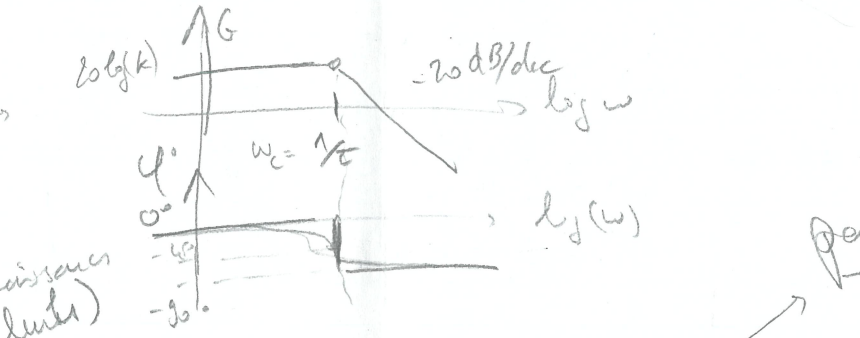 G
20 log(k)
-20 dB/dec
log ω
ωc = 1/τ
φ°
0°
log(ω)
-90°